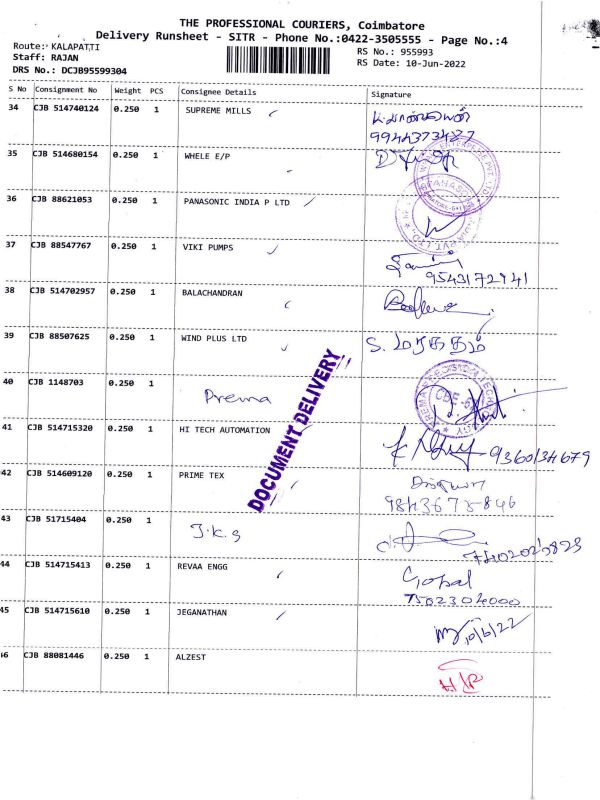 THE PROFESSIONAL COURIERS, Coimbatore
Delivery Runsheet - SITR - Phone No.:0422-3505555 - Page No.:4
Route: KALAPATTI
Staff: RAJAN
DRS No.: DCJB95599304
RS No.: 955993
RS Date: 10-Jun-2022
S No Consignment No Weight PCS Consignee Details Signature
34 CJB 514740124 0.250 1 SUPREME MILLS
35 CJB 514680154 0.250 1 WHELE E/P
36 CJB 88621053 0.250 1 PANASONIC INDIA P LTD
37 CJB 88547767 0.250 1 VIKI PUMPS
9543172941
38 CJB 514702957 0.250 1 BALACHANDRAN
39 CJB 88507625 0.250 1 WIND PLUS LTD S. மரகதம்
40 CJB 1148703 0.250 1 Prema
41 CJB 514715320 0.250 1 HI TECH AUTOMATION
9360134679
DOCUMENT DELIVERY
42 CJB 514609120 0.250 1 PRIME TEX
9843675846
43 CJB 51715404 0.250 1 J.K.S
44 CJB 514715413 0.250 1 REVAA ENGG Gopal
7502304000
45 CJB 514715610 0.250 1 JEGANATHAN 10/6/22
46 CJB 88081446 0.250 1 ALZEST